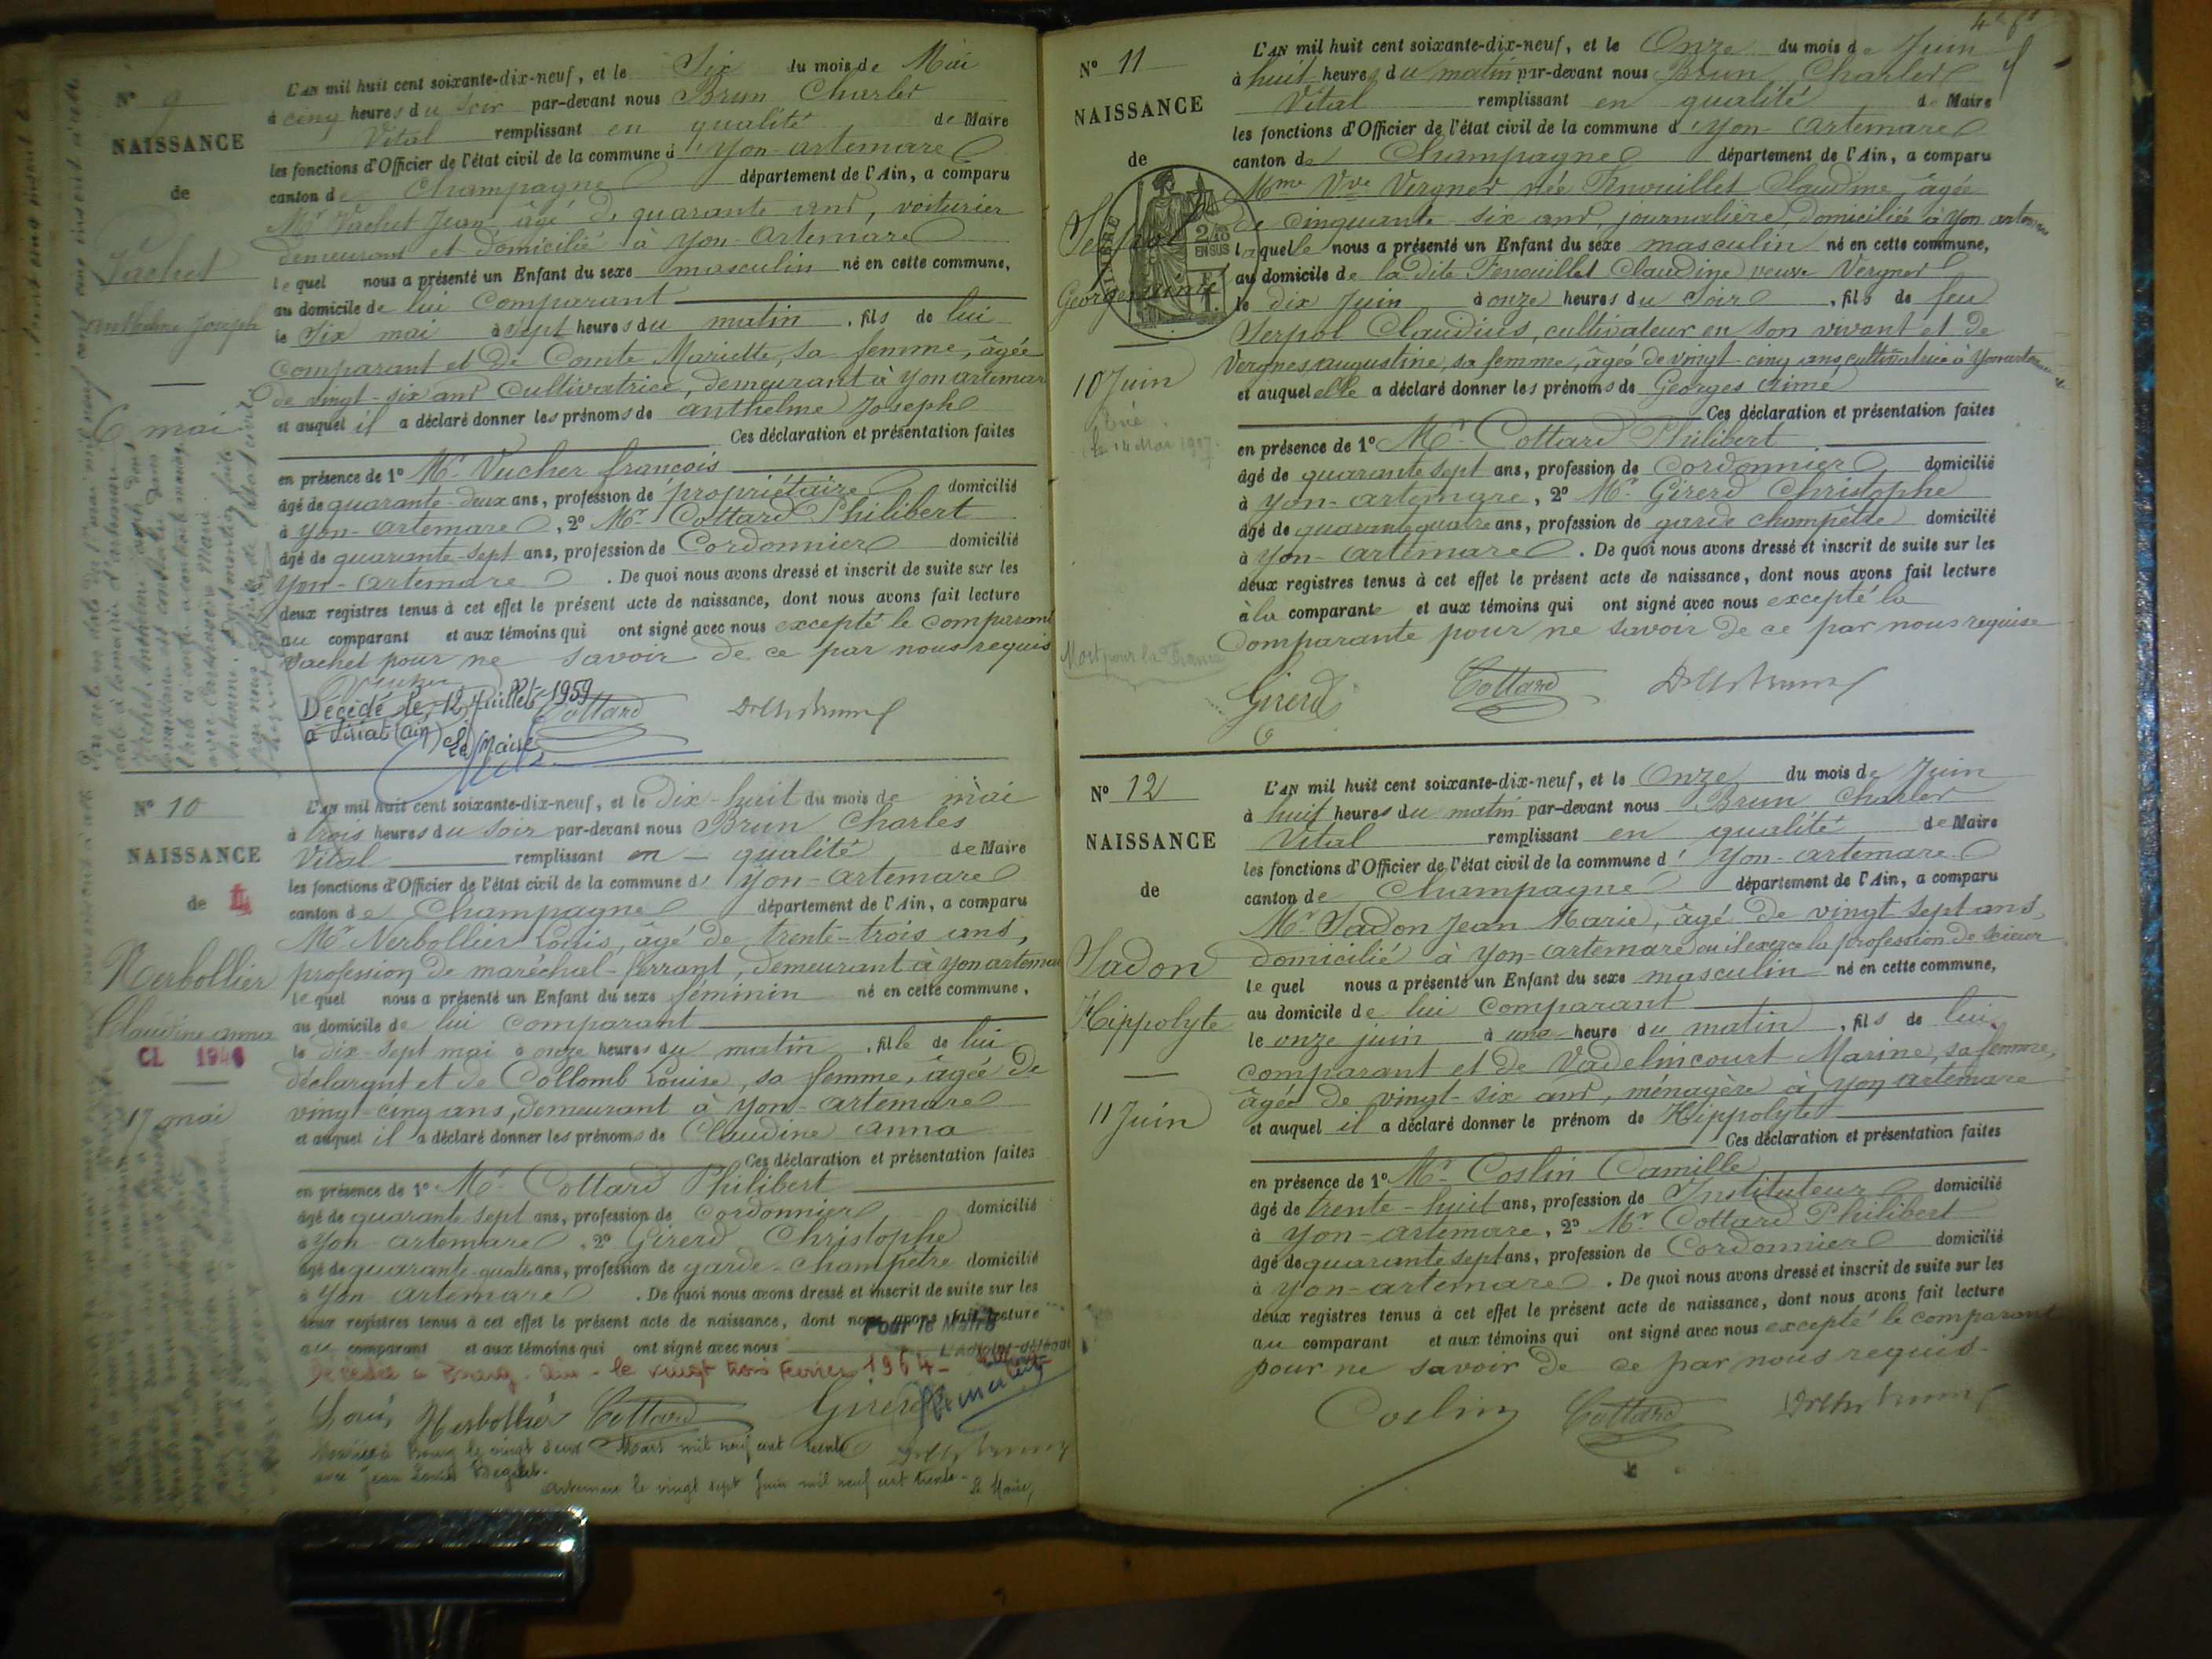 N° 9
NAISSANCE
de
Vachet
Anthelme Joseph
6 mai
L'AN mil huit cent soixante-dix-neuf, et le Six du mois de Mai
à cinq heures du soir par-devant nous Brun Charles
Vital remplissant en qualité de Maire
les fonctions d'Officier de l'état civil de la commune d'Yon-artemare
canton de Champagne département de l'Ain, a comparu
Mr Vachet Jean âgé de quarante ans, voiturier
demeurant et domicilié à Yon-Artemare
lequel nous a présenté un Enfant du sexe masculin né en cette commune,
au domicile de lui Comparant
le Six mai à sept heures du matin, fils de lui
comparant et de Comte Mariette, sa femme, âgée
de vingt-six ans Cultivatrice, demeurant à Yon artemar
et auquel il a déclaré donner les prénoms de anthelme Joseph
Ces déclaration et présentation faites
en présence de 1° Mr Vucher françois
âgé de quarante-deux ans, profession de propriétaire domicilié
à Yon-artemare, 2° Mr Cottard Philibert
âgé de quarante-sept ans, profession de Cordonnier domicilié
Yon-artemare. De quoi nous avons dressé et inscrit de suite sur les
deux registres tenus à cet effet le présent acte de naissance, dont nous avons fait lecture
au comparant et aux témoins qui ont signé avec nous excepté le comparant
Vachet pour ne savoir de ce par nous requis
Vucher
Décédé le 12 Juillet 1959
à Viriat (ain) Le Maire
Cottard
N° 10
NAISSANCE
de
Nerbollier
Claudine anna
CL 1946
17 mai
L'AN mil huit cent soixante-dix-neuf, et le Dix-huit du mois de mai
à trois heures du soir par-devant nous Brun Charles
Vital remplissant en qualité de Maire
les fonctions d'Officier de l'état civil de la commune d'Yon-artemare
canton de Champagne département de l'Ain, a comparu
Mr Nerbollier Louis, âgé de trente-trois ans,
profession de maréchal-ferrant, demeurant à Yon artemar
lequel nous a présenté un Enfant du sexe féminin né en cette commune,
au domicile de lui comparant
le dix-sept mai à onze heures du matin, fille de lui
déclarant et de Collomb Louise, sa femme, âgée de
vingt-cinq ans, demeurant à Yon-artemare
et auquel il a déclaré donner les prénoms de Claudine anna
Ces déclaration et présentation faites
en présence de 1° Mr Cottard Philibert
âgé de quarante sept ans, profession de Cordonnier domicilié
à Yon artemare, 2° Girerd Christophe
âgé de quarante-quatre ans, profession de garde-champêtre domicilié
à Yon artemare. De quoi nous avons dressé et inscrit de suite sur les
deux registres tenus à cet effet le présent acte de naissance, dont nous avons fait lecture
au comparant et aux témoins qui ont signé avec nous
Pour le Maire
L'Adjoint-délégué
Décédée à Bourg. Ain. le vingt trois Février 1964-
Louis Nerbollier Cottard Girerd
Mariée à Bourg le vingt deux Mars mil neuf cent trente
avec Jean Louis
Artemare le vingt sept Juin mil neuf cent trente- Le Maire,
N° 11
NAISSANCE
de
Serpol
Georges aimé
10 Juin
Tué
le 14 Mai 1917.
Mort pour la France
TIMBRE
2/10
EN SUS
L'AN mil huit cent soixante-dix-neuf, et le Onze du mois de Juin
à huit heures du matin par-devant nous Brun Charles
Vital remplissant en qualité de Maire
les fonctions d'Officier de l'état civil de la commune d'Yon-artemare
canton de Champagne département de l'Ain, a comparu
Mme Vve Vergnes née Fenouillet Claudine, âgée
de cinquante-six ans journalière domiciliée à Yon artem
laquelle nous a présenté un Enfant du sexe masculin né en cette commune,
au domicile de la dite Fenouillet Claudine veuve Vergnes
le dix Juin à onze heures du soir, fils de feu
Serpol Claudius, cultivateur en son vivant et de
Vergnes augustine, sa femme, âgée de vingt-cinq ans, cultivatrice à Yon artemare
et auquel elle a déclaré donner les prénoms de Georges aimé
Ces déclaration et présentation faites
en présence de 1° Mr Cottard Philibert
âgé de quarante sept ans, profession de Cordonnier domicilié
à Yon-artemare, 2° Mr Girerd Christophe
âgé de quarante quatre ans, profession de garde champêtre domicilié
à Yon-artemare. De quoi nous avons dressé et inscrit de suite sur les
deux registres tenus à cet effet le présent acte de naissance, dont nous avons fait lecture
à la comparante et aux témoins qui ont signé avec nous excepté la
Comparante pour ne savoir de ce par nous requise
Girerd Cottard
N° 12
NAISSANCE
de
Sadon
Hippolyte
11 Juin
L'AN mil huit cent soixante-dix-neuf, et le Onze du mois de Juin
à huit heures du matin par-devant nous Brun Charles
Vital remplissant en qualité de Maire
les fonctions d'Officier de l'état civil de la commune d'Yon-artemare
canton de Champagne département de l'Ain, a comparu
Mr Sadon Jean Marie, âgé de vingt sept ans,
domicilié à Yon-artemare ou il exerce la profession de scieur
lequel nous a présenté un Enfant du sexe masculin né en cette commune,
au domicile de lui comparant
le onze juin à une heure du matin, fils de lui
comparant et de Vadelincourt Marine, sa femme,
âgée de vingt-six ans, ménagère à Yon artemare
et auquel il a déclaré donner le prénom de Hippolyte
Ces déclaration et présentation faites
en présence de 1° Mr Coslin Camille
âgé de trente-huit ans, profession de Instituteur domicilié
à Yon-artemare, 2° Mr Cottard Philibert
âgé de quarante sept ans, profession de Cordonnier domicilié
à Yon-artemare. De quoi nous avons dressé et inscrit de suite sur les
deux registres tenus à cet effet le présent acte de naissance, dont nous avons fait lecture
au comparant et aux témoins qui ont signé avec nous excepté le comparant
pour ne savoir de ce par nous requis
Coslin Cottard